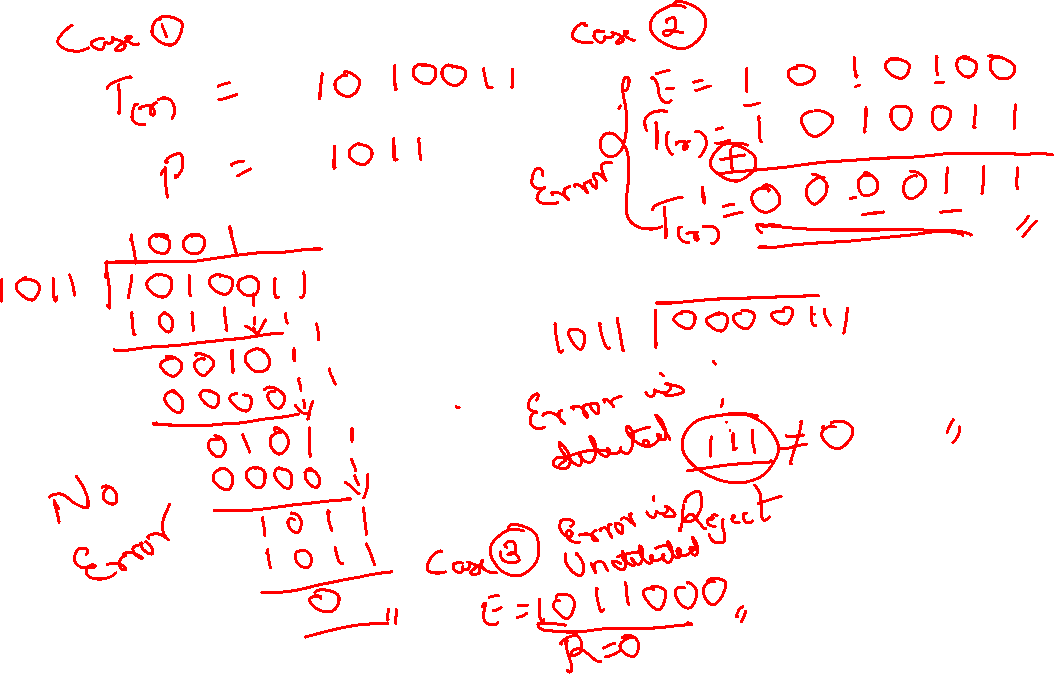 Case ①
T(x) = 1010011
P = 1011
1001
1011 1010011
1011
0010
0000
0101
0000
1011
1011
0
No
Error
Case ②
E = 1010100
T(x) = 1010011
+
Error
T'(x) = 0000111 "
1011 0000111
Error is
detected 111 ≠ 0 "
Reject
Case ③ Error is
Undetected
E = 1011000 "
R=0